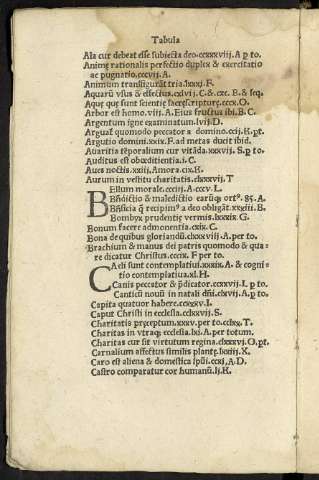 Tabula
Ala cur debeat esse subiecta deo. ccxxxviij. A p to.
Animę rationalis perfectio duplex & exercitatio
ac pugnatio. cccvij. A.
Animum transfigurāt tria. lxxxj. F.
Aquarū vsus & effectus. cxlvij. C. & cxc. B. & seq.
Aquę quę sunt scientię sacręscripturę. cccx. O.
Arbor est homo. viij. A. Eius fructus ibi. B. C.
Argentum igne examinatum. lvij. D.
Arguat quomodo peccator a domino. ccij. K. pt.
Argutio domini. cxix. F. ad metas ducit ibid.
Auaritia tēporalium cur vitāda. xxxvij. S. p to.
Auditus est obœditentia. i. C.
Aues noctis. xxiij. Amora. cix. H.
Aurum in vestitu charitatis. clxxxvij. T
BEllum morale. ccciij. A. cccv. L.
Bn̄dictio & maledictio earūqꝫ ortꝰ. 85. A.
Bn̄ficia q̄ recipimꝰ a deo obligāt. xxxiij. B.
Bombyx prudentię vermis. lxxxix. G.
Bonum facere admonentia. cxix. C.
Bona de quibus gloriandū. clxxxviij. A. per to.
Brachium & manus dei patris quomodo & qua⸗
re dicatur Christus. cccix. F per to.
CAeli sunt contemplatiui. xxxix. A. & cogni⸗
tio contemplatiua. xl. H.
Canis peccator & p̄dicator. ccxxvij. I. p to.
Canticū nouū in natali dn̄i. clxvij. A. p to.
Capita quatuor habere. ccxxxv. I.
Caput Christi in ecclesia. clxxvij. S.
Charitatis pręceptum. xxxv. per to. cclxx. T.
Charitas in vtraqꝫ ecclesia. lxi. A. per totum.
Charitas cur sit virtutum regina. clxxxvij. O. pt.
Carnalium affectus similis plantę. lxiij. X.
Caro est aliena & domestica sp̄ui. ccxi. A. D.
Castro comparatur cor humanū. lj. K.